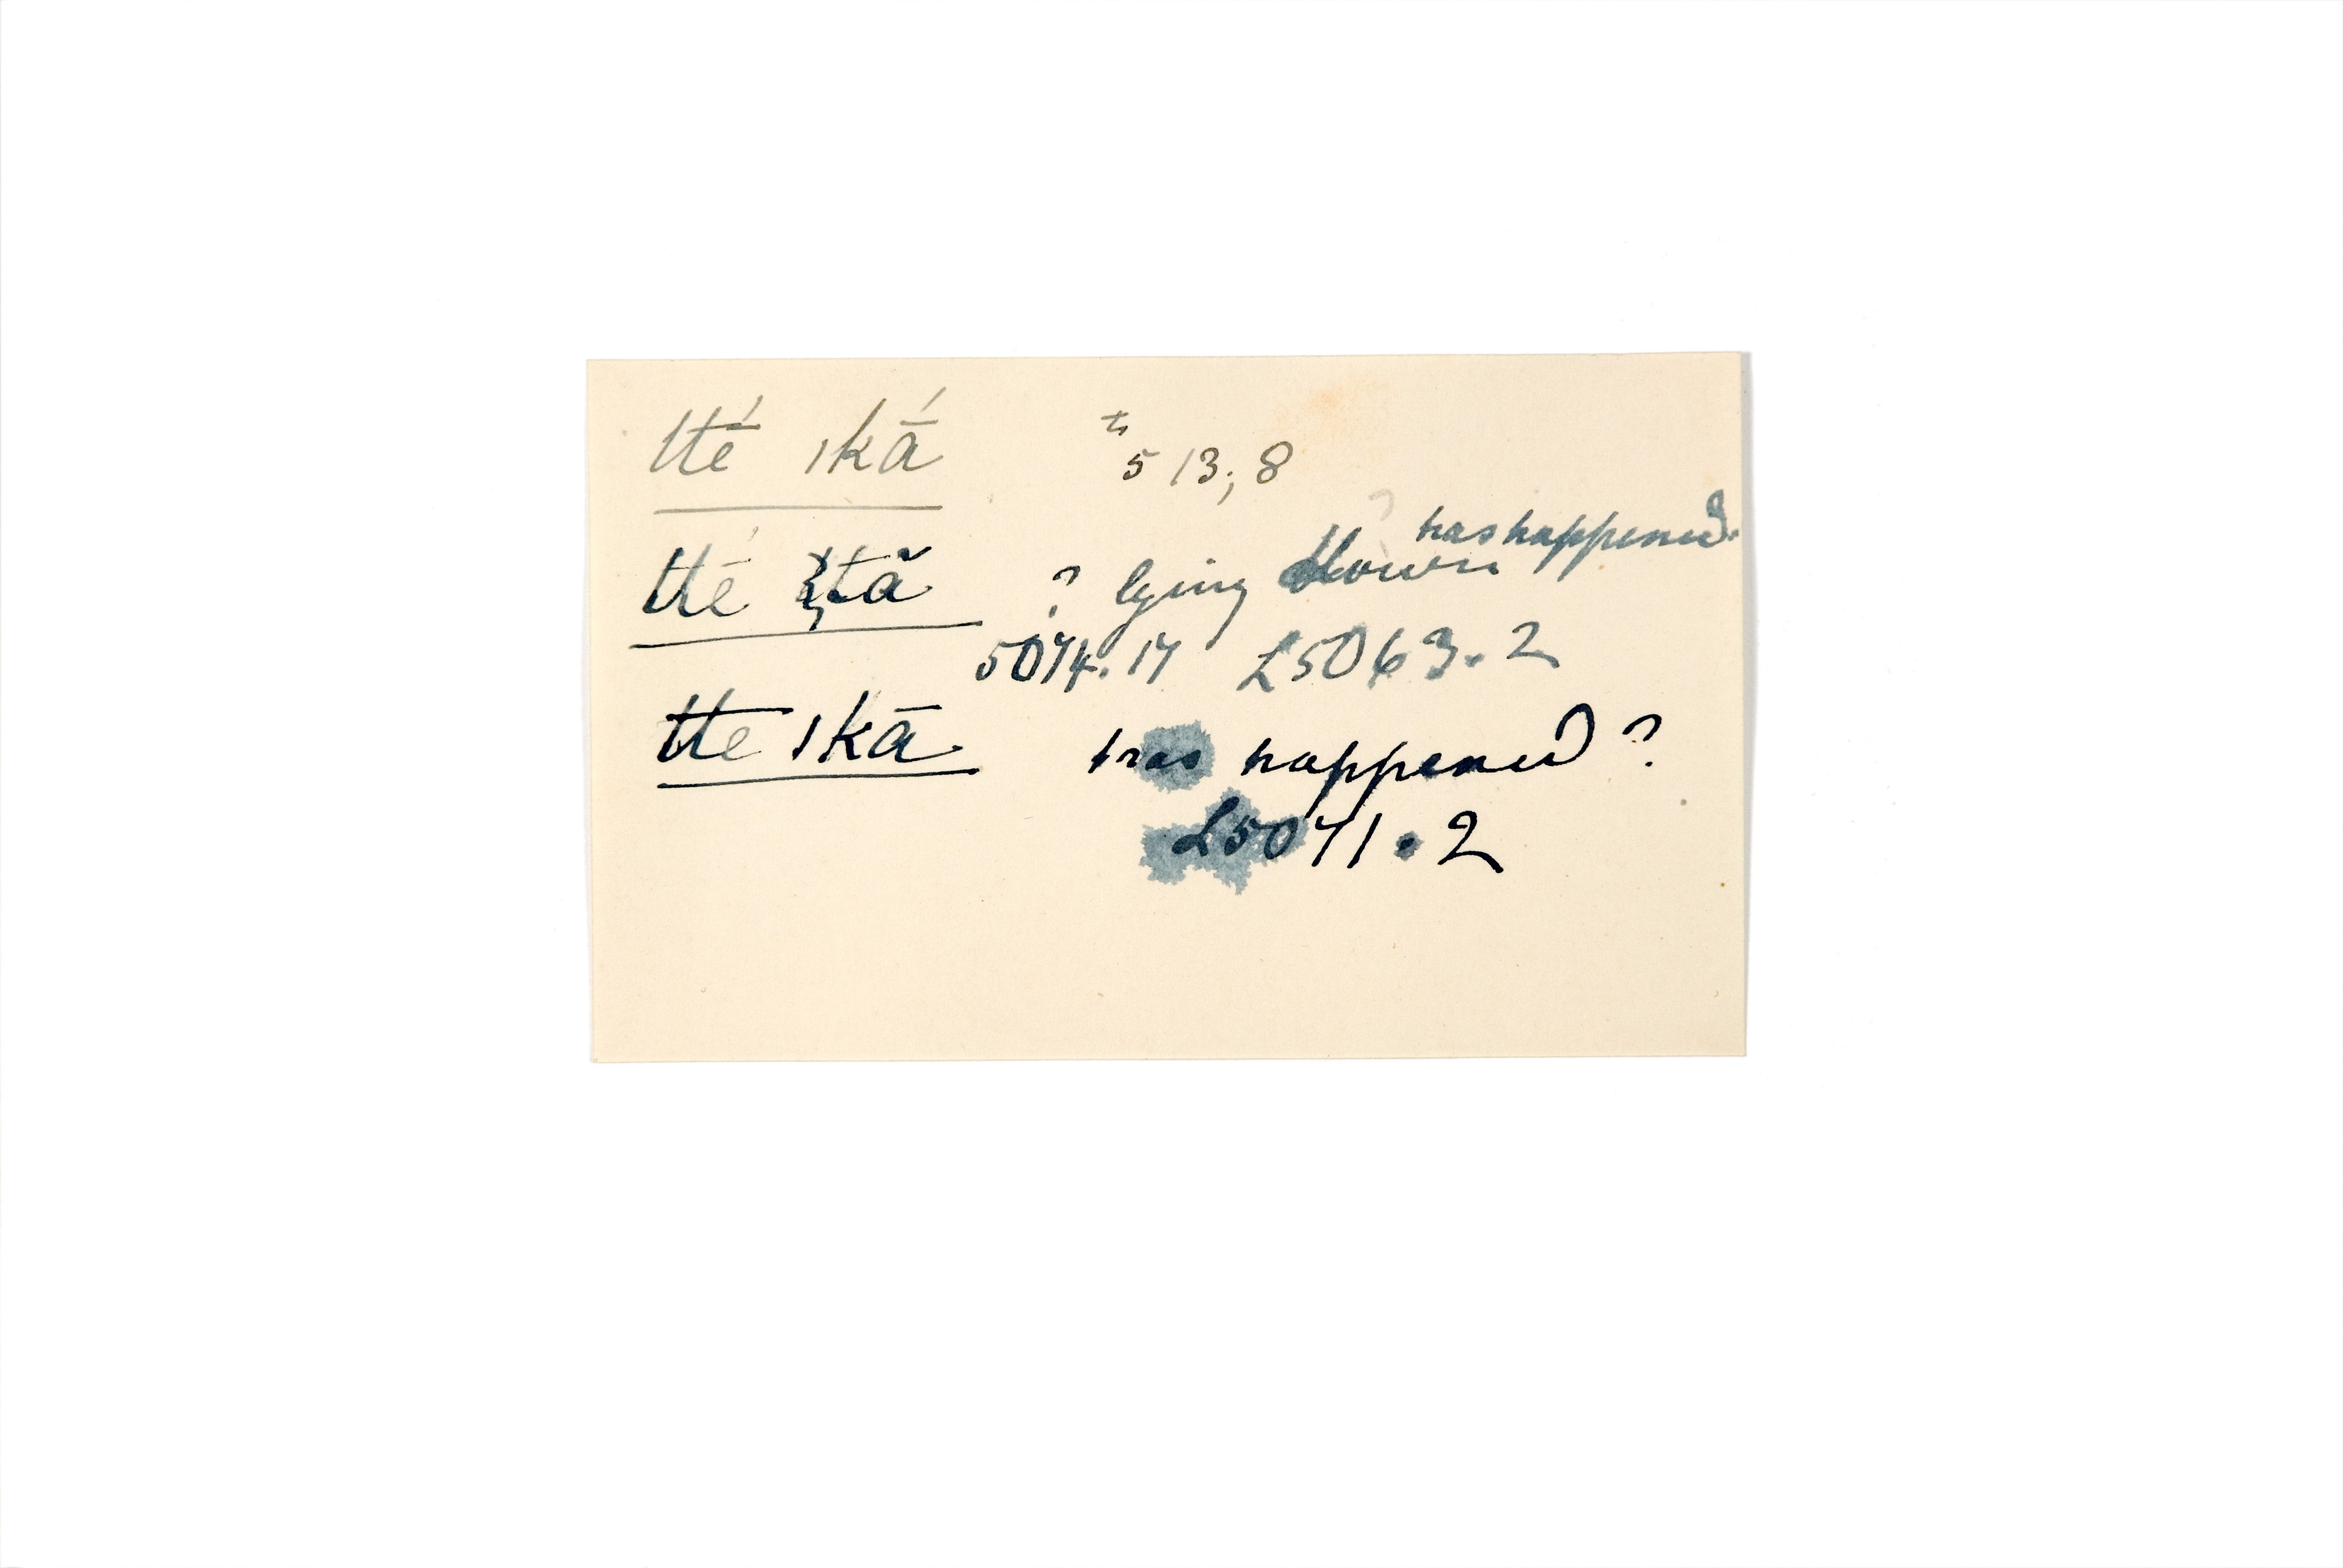 ttḗ ıkā́ ti 513; 8
tté ttă ? lying down has happened.
5074.17 L5063.2
tte ıkā has happened ?
L5071.2